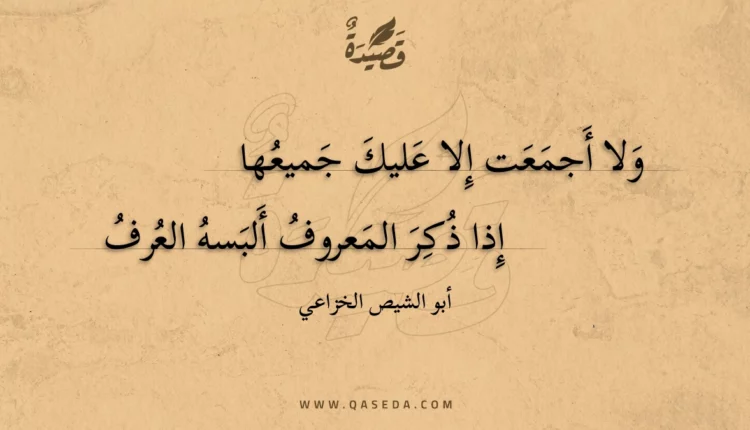 قَصِيْدَةٌ
وَلا أَجمَعَت إِلا عَليكَ جَميعُها
إِذا ذُكِرَ المَعروفُ أَلبَسهُ العُرفُ
أبو الشيص الخزاعي
WWW.QASEDA.COM